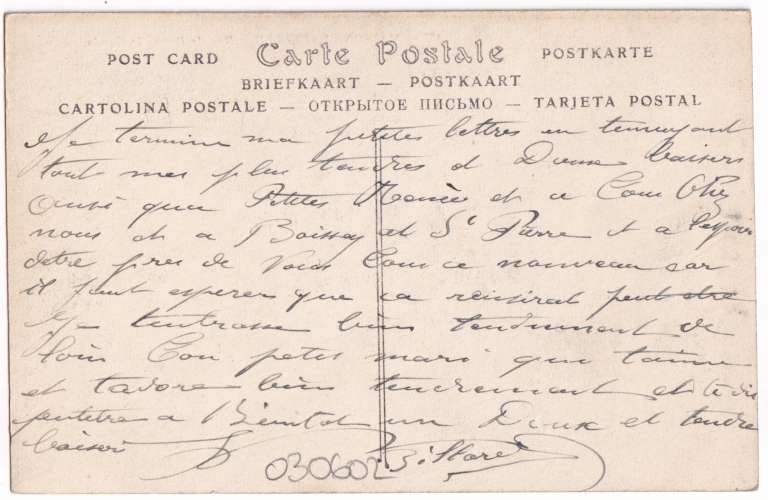 POST CARD Carte Postale POSTKARTE
BRIEFKAART — POSTKAART
CARTOLINA POSTALE — ОТКРЫТОЕ ПИСЬМО — TARJETA POSTAL
Je termine ma petites lettres en tenvoyant
tout mes plus tendres et Doux baisers
ainsi qua Petites et a Tous Chez
nous et a Boissey et St Pierre et a lespoir
detre pres de Vous Tous ce nouveau car
il faut esperer que ca reusirat peut etre
Je tembrasse bien tendrement de
loin Ton petit mari qui taime
et tadore bien tendrement et te dis
peutetre a Bientot un Doux et tendre
baiser
030602